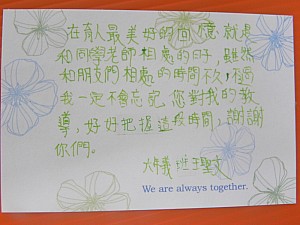 在育人最美好的回憶就是
和同學老師相處的日子，雖然
和朋友們相處的時間不久，但
我一定不會忘記，您對我的教
導，好好把握這段時間，謝謝
你們。
班王聖文
We are always together.